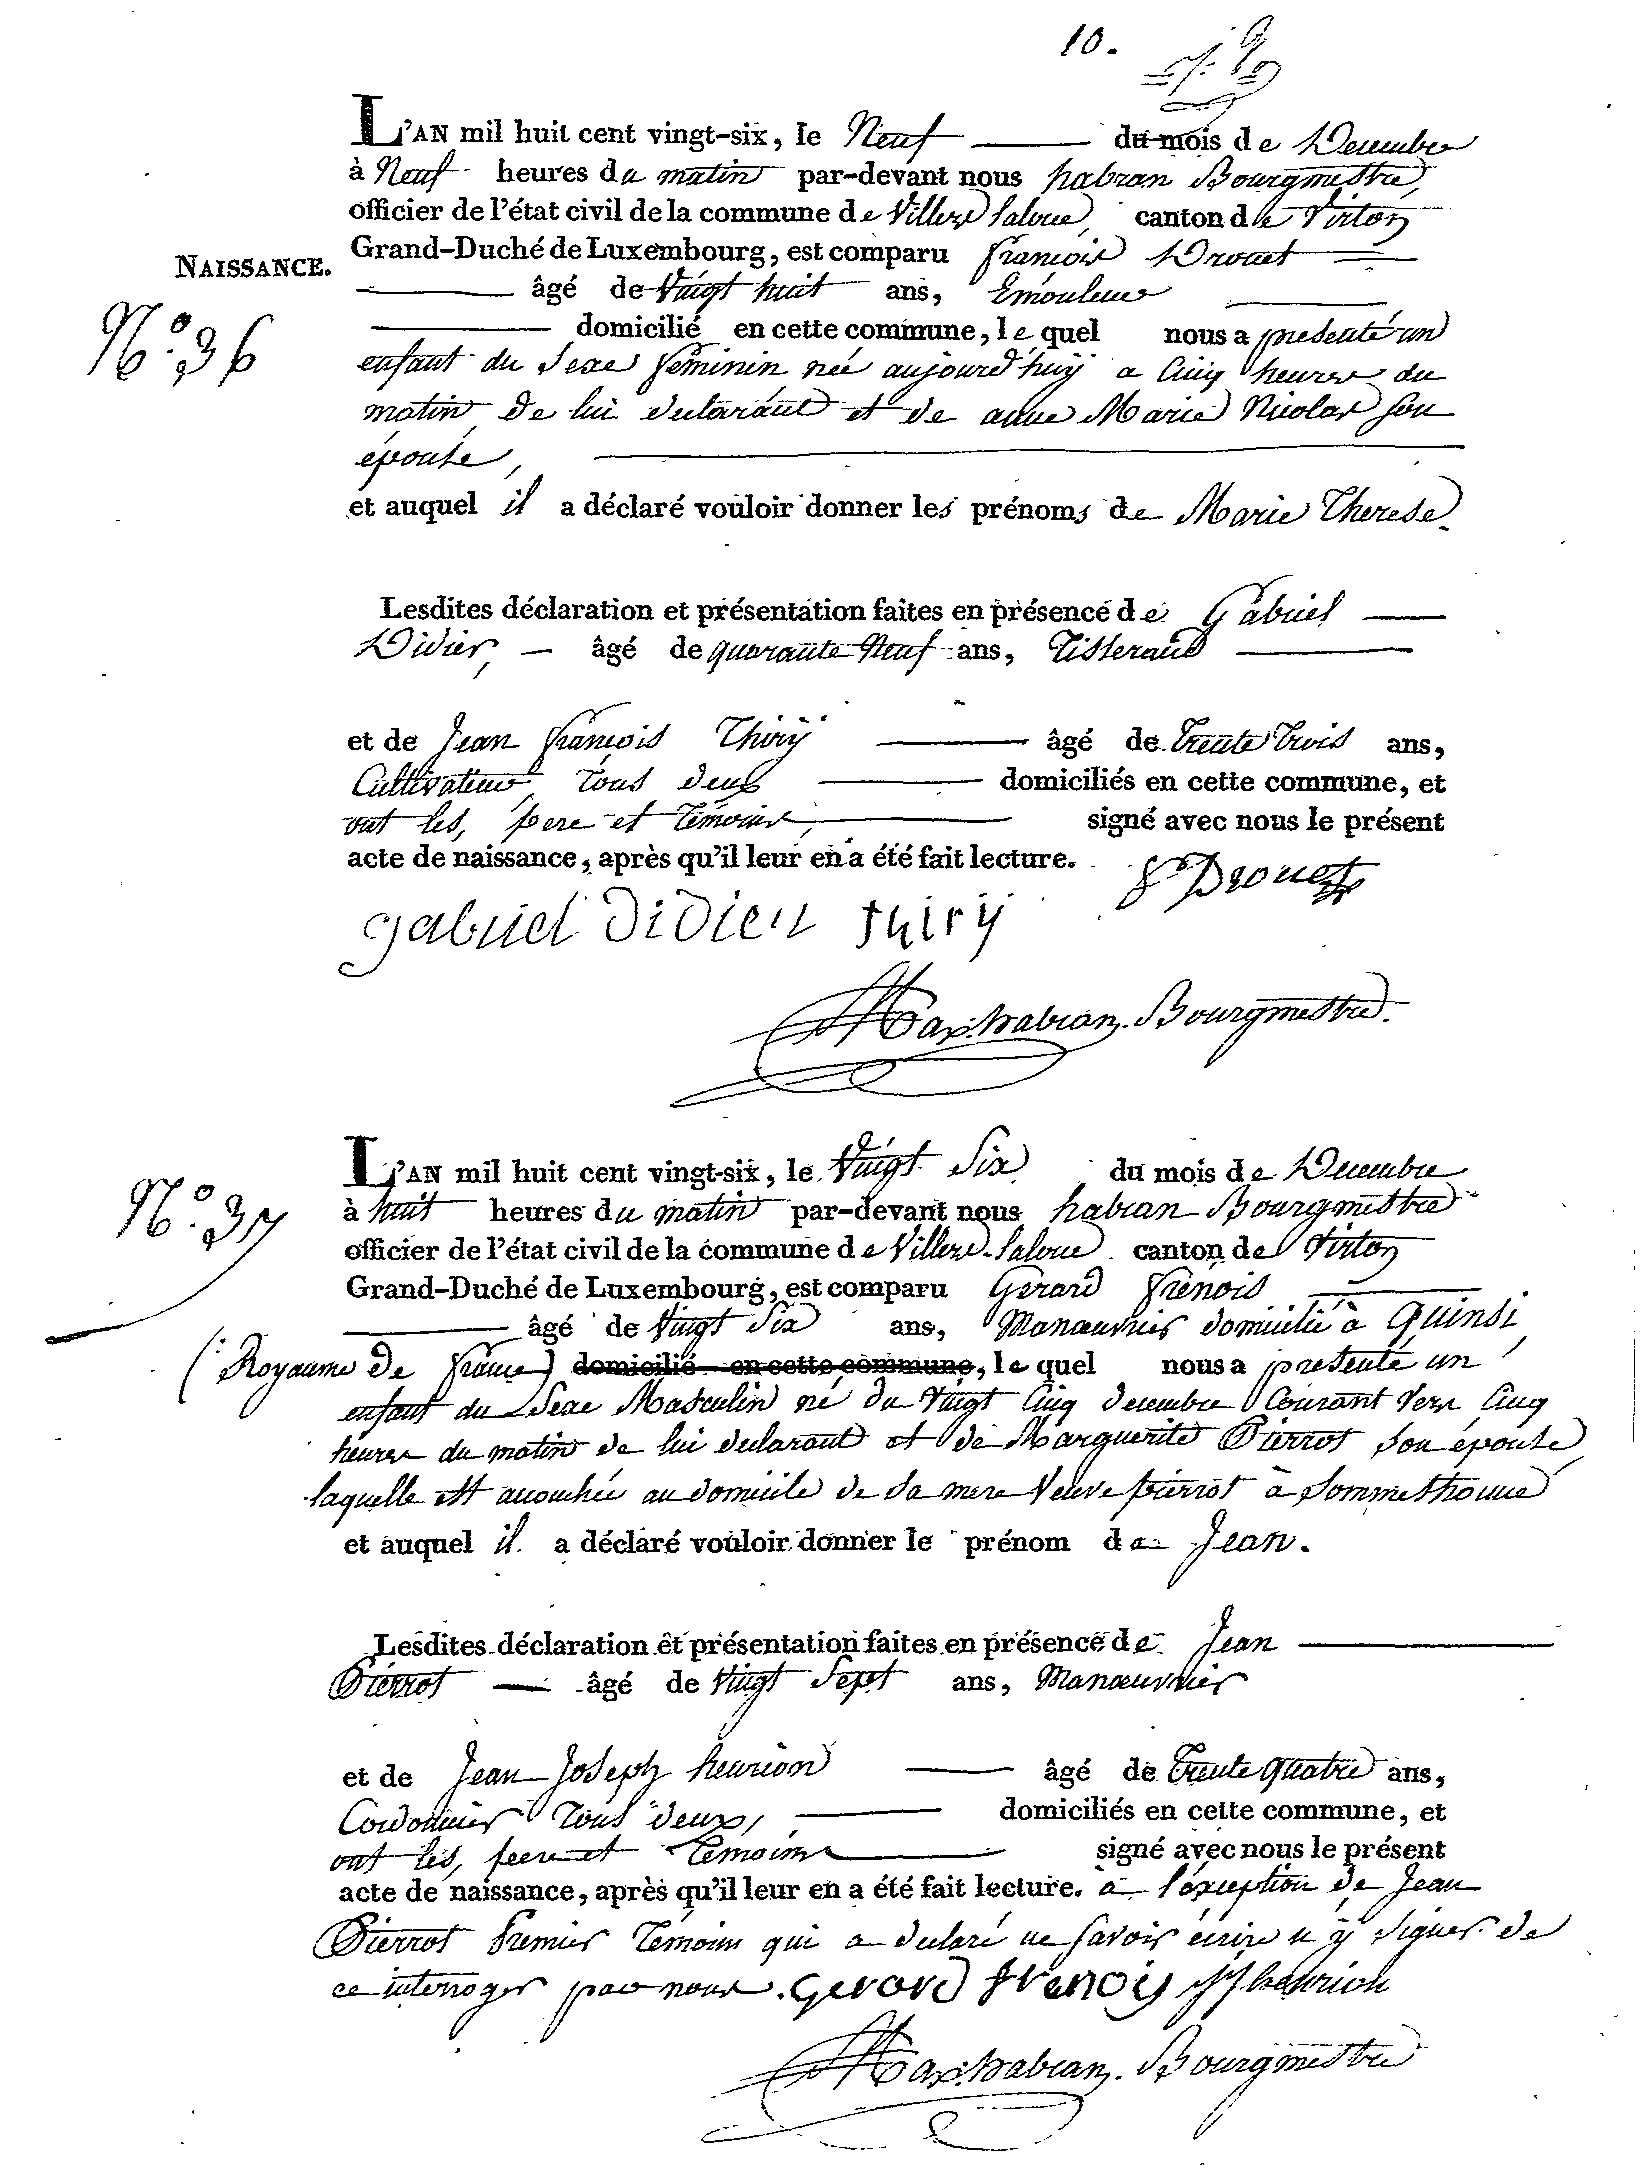 10.
L'AN mil huit cent vingt-six, le Neuf du mois de Decembre
à Neuf heures du matin par-devant nous habran Bourgmestre,
officier de l'état civil de la commune de Villers Laloue, canton de Virton
Grand-Duché de Luxembourg, est comparu françois Drouet
NAISSANCE.
âgé de Vingt huit ans, Emouleur
N.o 36
domicilié en cette commune, le quel nous a presenté un
enfant du Sexe feminin née aujourd'huÿ a Cinq heures du
matin de lui declarant et de anne Marie Nicolas son
épouse,
et auquel il a déclaré vouloir donner les prénoms de Marie Therese.
Lesdites déclaration et présentation faites en présence de Gabriel
Didier, âgé de quarante Neuf ans, Tisserand
et de Jean françois Thirÿ âgé de Trente Trois ans,
Cultivateur, Tous deux domiciliés en cette commune, et
ont les, pere et Témoins, signé avec nous le présent
acte de naissance, après qu'il leur en a été fait lecture. fs Drouet
gabriel didier thirÿ
Max. habran. Bourgmestre.
L'AN mil huit cent vingt-six, le Vingt Six du mois de Decembre
N.o 37
à huit heures du matin par-devant nous habran Bourgmestre
officier de l'état civil de la commune de Villers-Laloue canton de Virton
Grand-Duché de Luxembourg, est comparu Gerard frenois
âgé de Vingt Six ans, Manœuvrier domicilié à Quinsi
(Royaume de france) domicilié en cette commune, le quel nous a presenté un
enfant du Sexe Masculin né du Vingt Cinq decembre Courant Vers Cinq
heures du matin de lui declarant et de Marguerite Pierrot son épouse
laquelle est accouchée au domicile de sa mere Veuve pierrot à Sommethonne
et auquel il a déclaré vouloir donner le prénom de Jean.
Lesdites déclaration et présentation faites en présence de Jean
Pierrot âgé de Vingt Sept ans, Manœuvrier
et de Jean Joseph henrion âgé de Trente Quatre ans,
Cordonnier Tous deux, domiciliés en cette commune, et
ont les, pere et Temoins signé avec nous le présent
acte de naissance, après qu'il leur en a été fait lecture. à l'éxception de Jean
Pierrot Premier Témoin qui a declaré ne savoir écrire n'ÿ signer de
ce interroger par nous. Gerard frenois JJ henrion
Max. habran. Bourgmestre